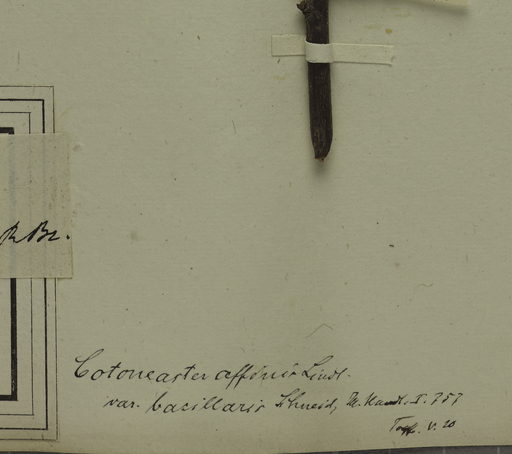 R Br.
Cotoneaster affinis Lindl.
var. bacillaris Schneid, Ill. Handb. I. 757
V. 20